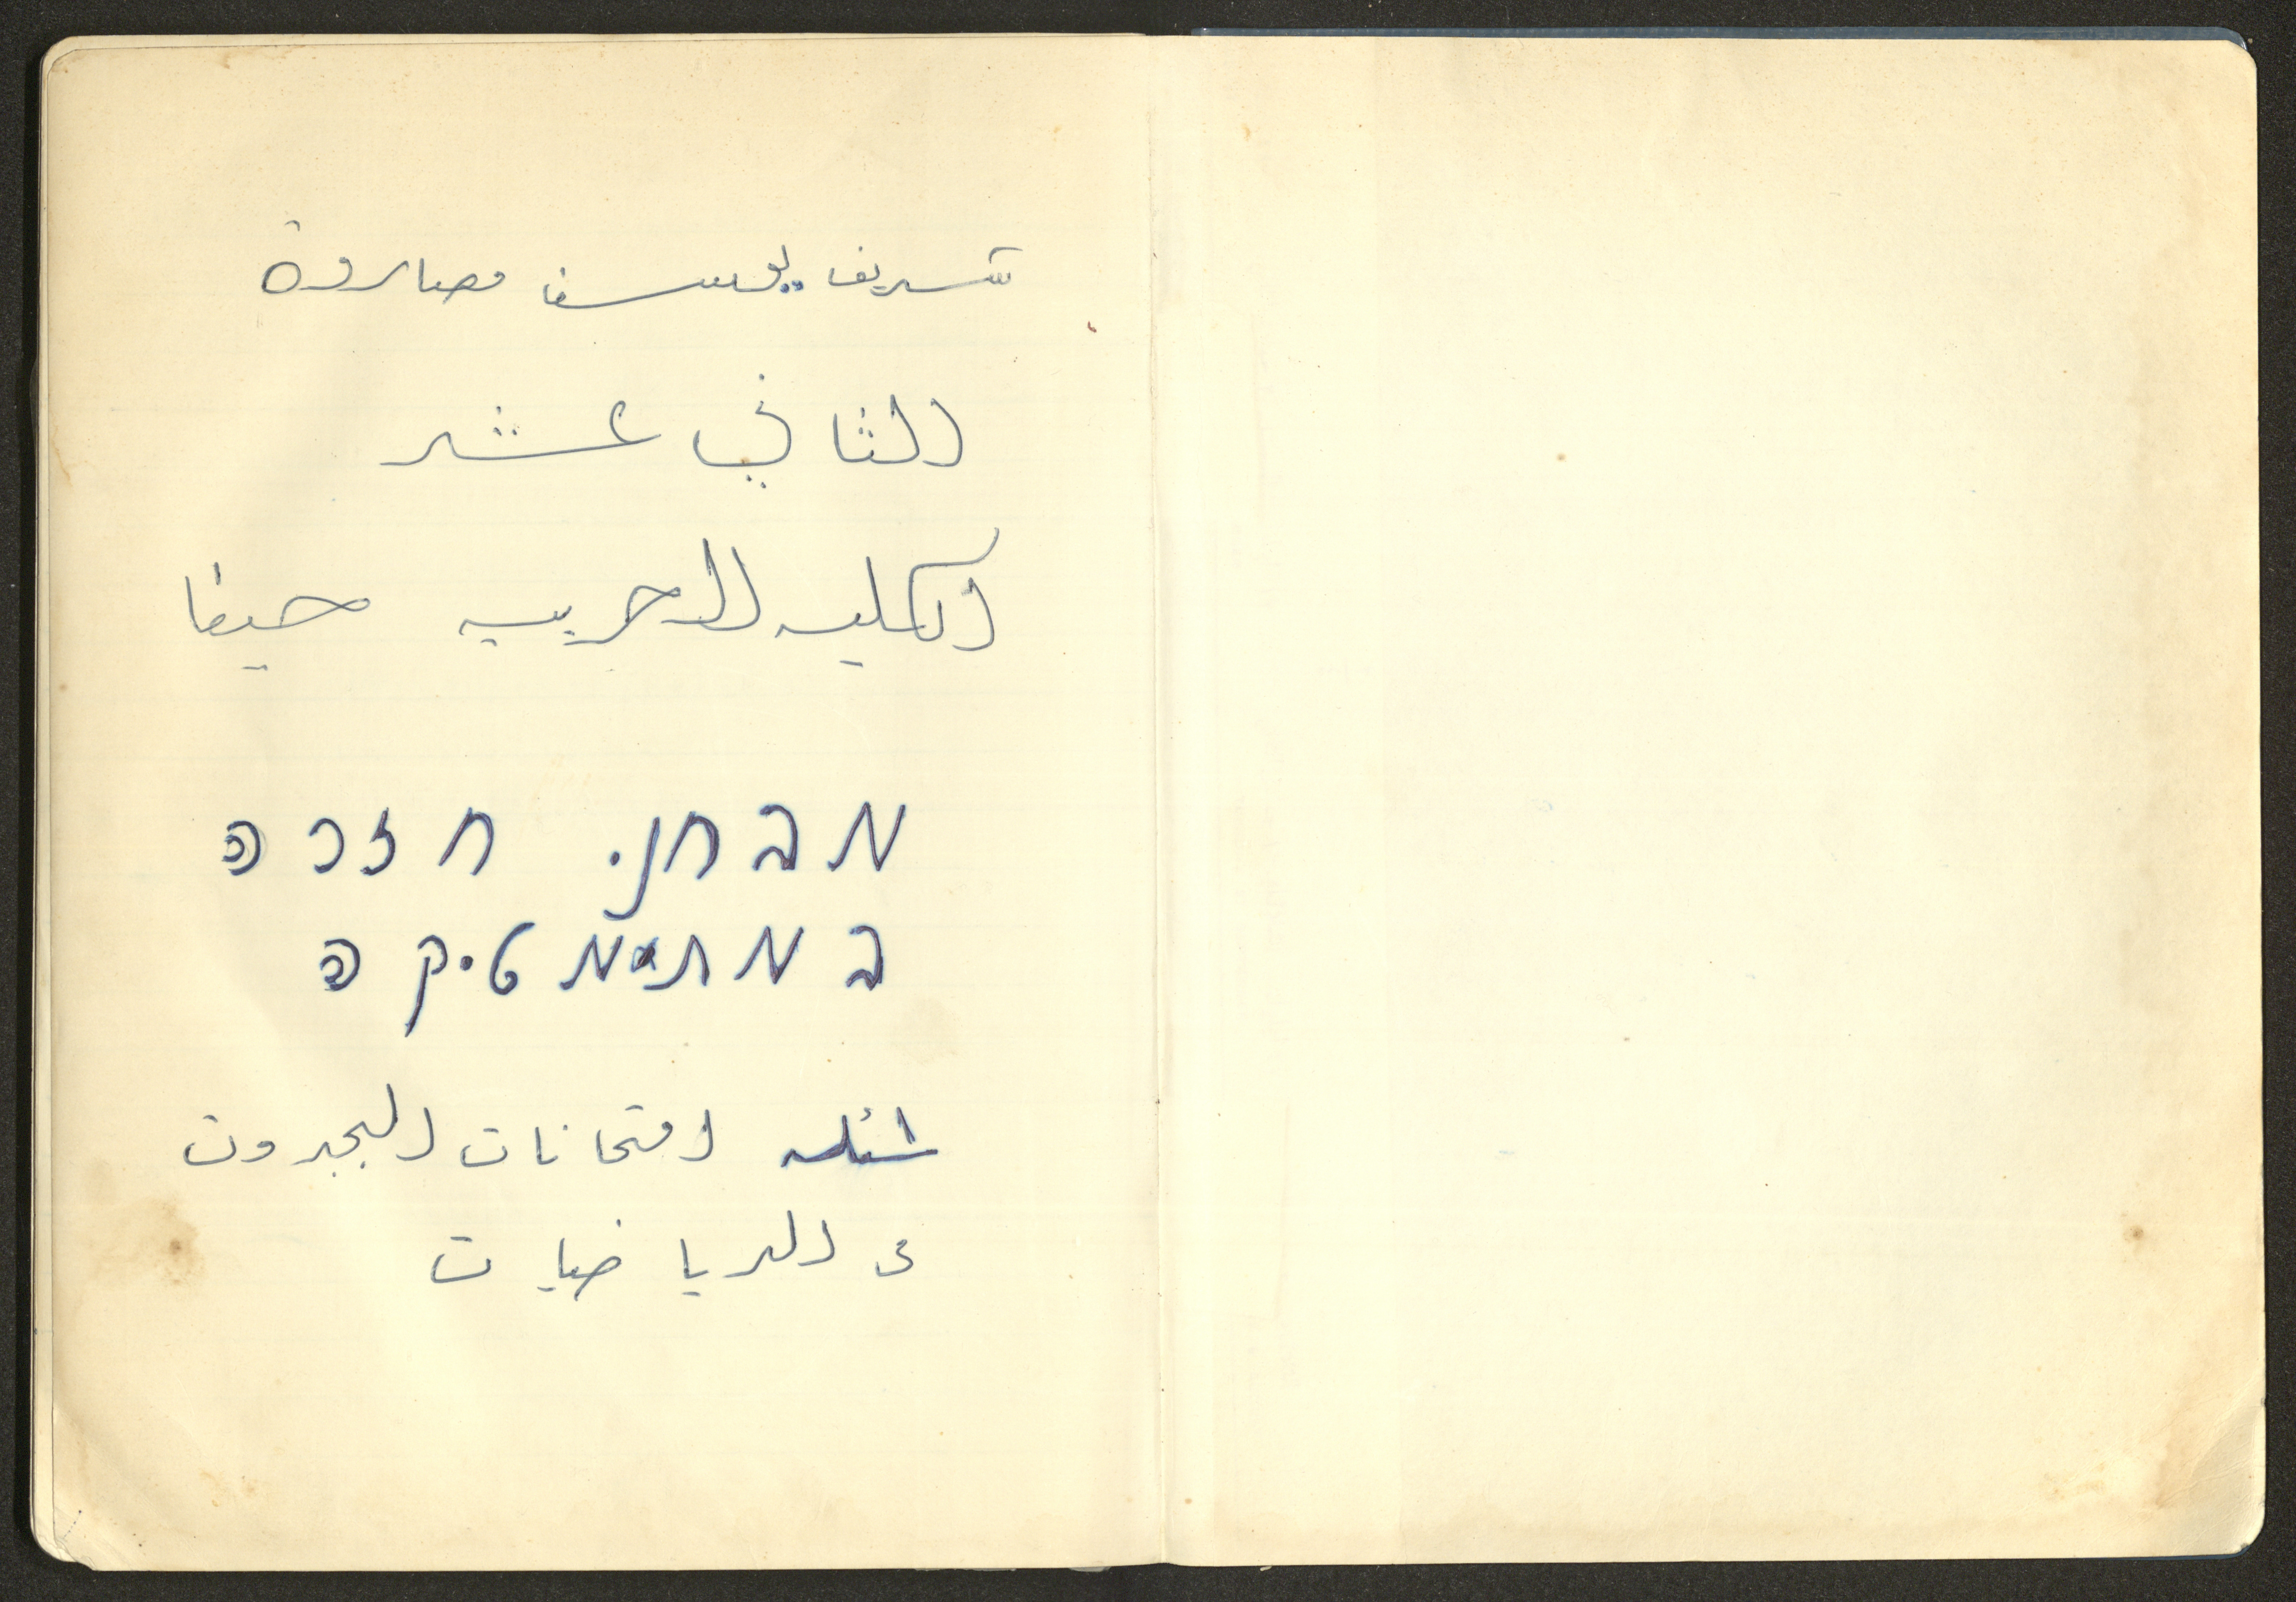 شريف يوسف مصاروة
الثاني عشر
الكليه العربيه حيفا
מבחני חזרה
במתימטיקה
اسئله امتحانات البجروت
في الرياضيات